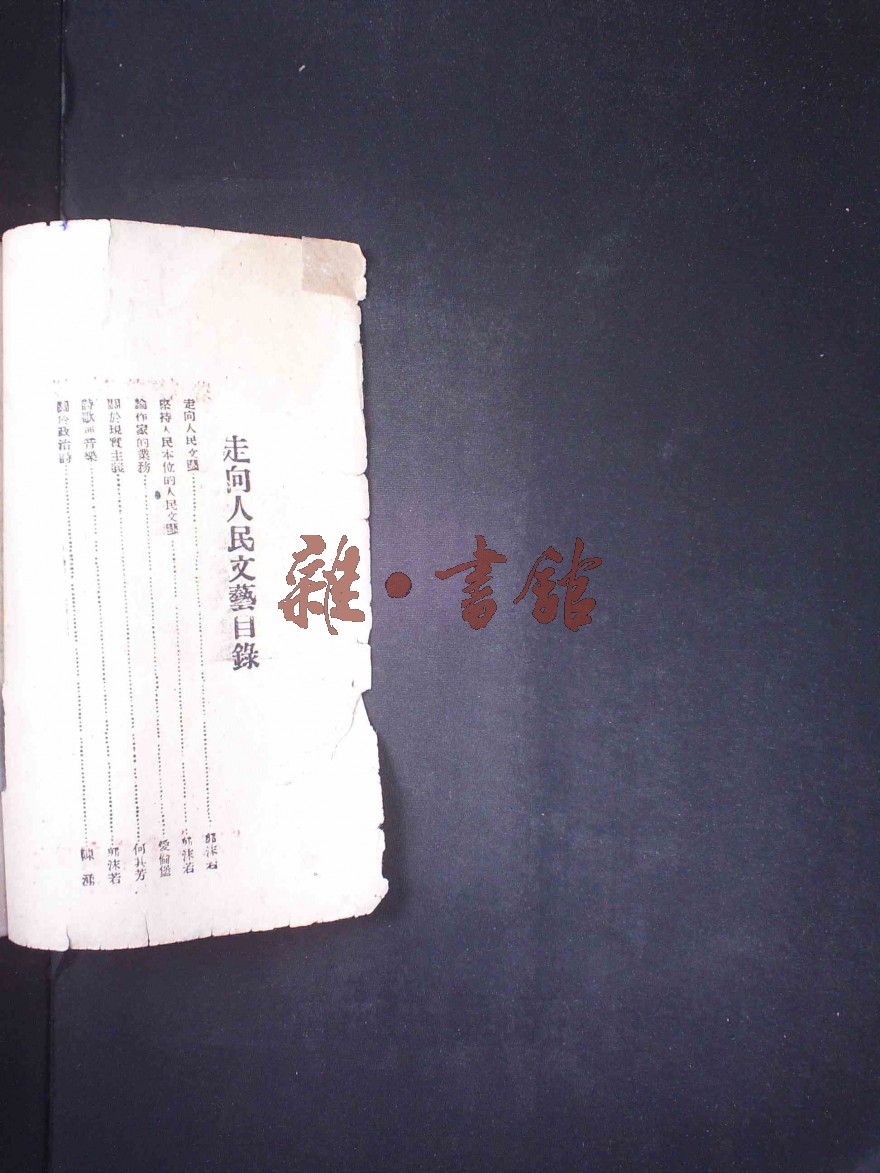 走向人民文藝目錄
走向人民文藝……郭沫若
堅持人民本位的人民文藝……郭沫若
論作家的業務……愛倫堡
關於現實主義……何其芳
詩歌與音樂……郭沫若
關於政治詩……陳
雜·書館